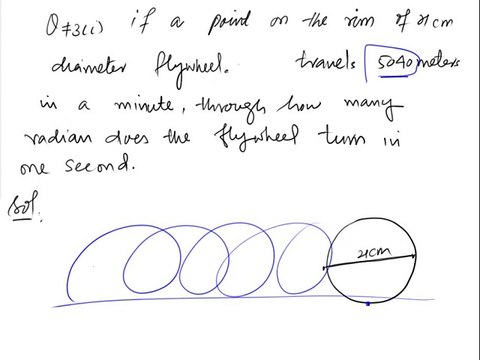 Q#3(i) if a point on the rim of 21cm
diameter flywheel. travels 5040 meters
in a minute, through how many
radian does the flywheel turn in
one second.
Sol.
21cm